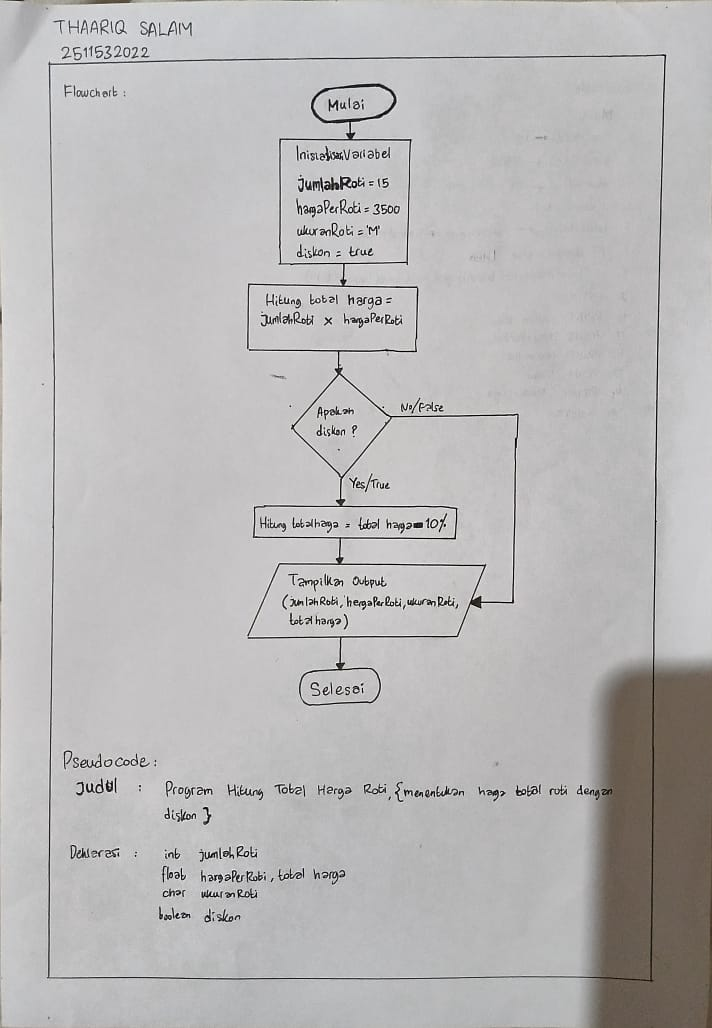 THAARIQ SALAM
2511532022
Flowchart :
Mulai
Inisialisasi Variabel
jumlahRoti = 15
hargaPerRoti = 3500
ukuranRoti = 'M'
diskon = true
Hitung total harga =
jumlahRoti x hargaPerRoti
Apakah
diskon ?
No/False
Yes/True
Hitung totalharga = total harga - 10%
Tampilkan Output
(jumlahRoti, hargaPerRoti, ukuranRoti,
totalharga)
Selesai
Pseudocode :
Judul : Program Hitung Total Harga Roti, {menentukan harga total roti dengan
diskon }
Deklarasi : int jumlahRoti
float hargaPerRoti, total harga
char ukuranRoti
boolean diskon